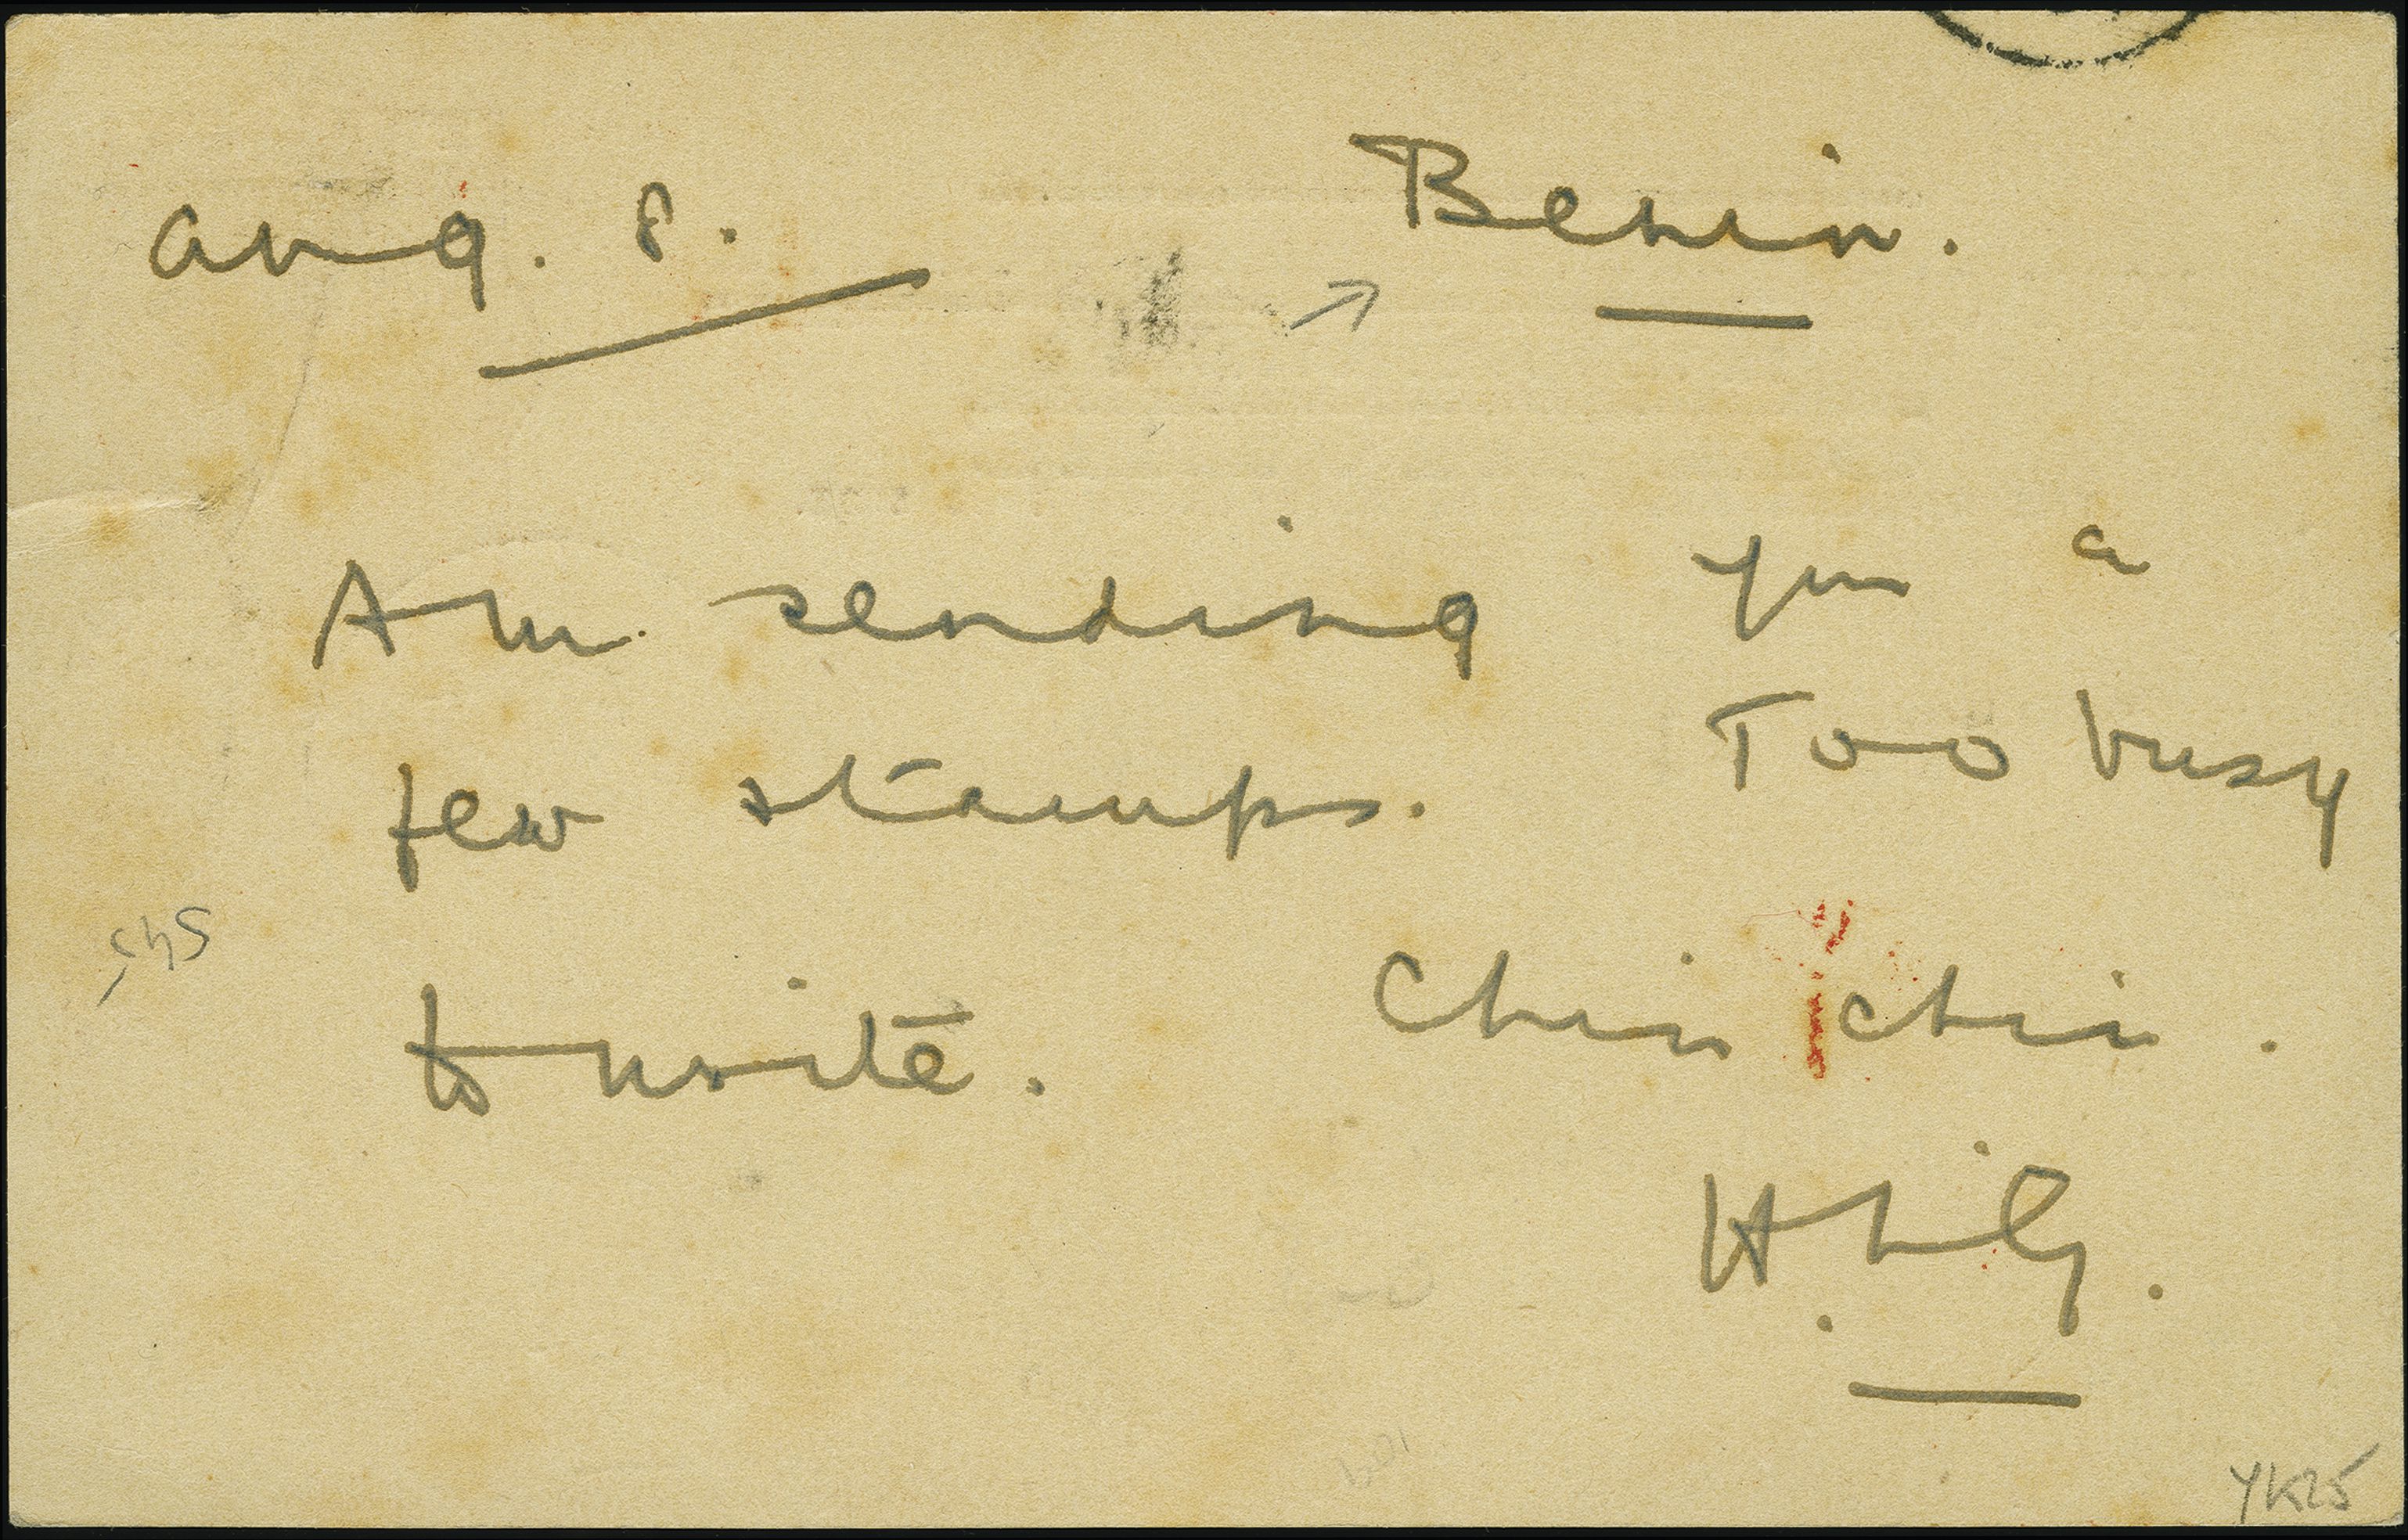 Aug. 8. Benin.
Am sending you a
few stamps. Too busy
to write. Chin chin.
H. L. G.
YK25